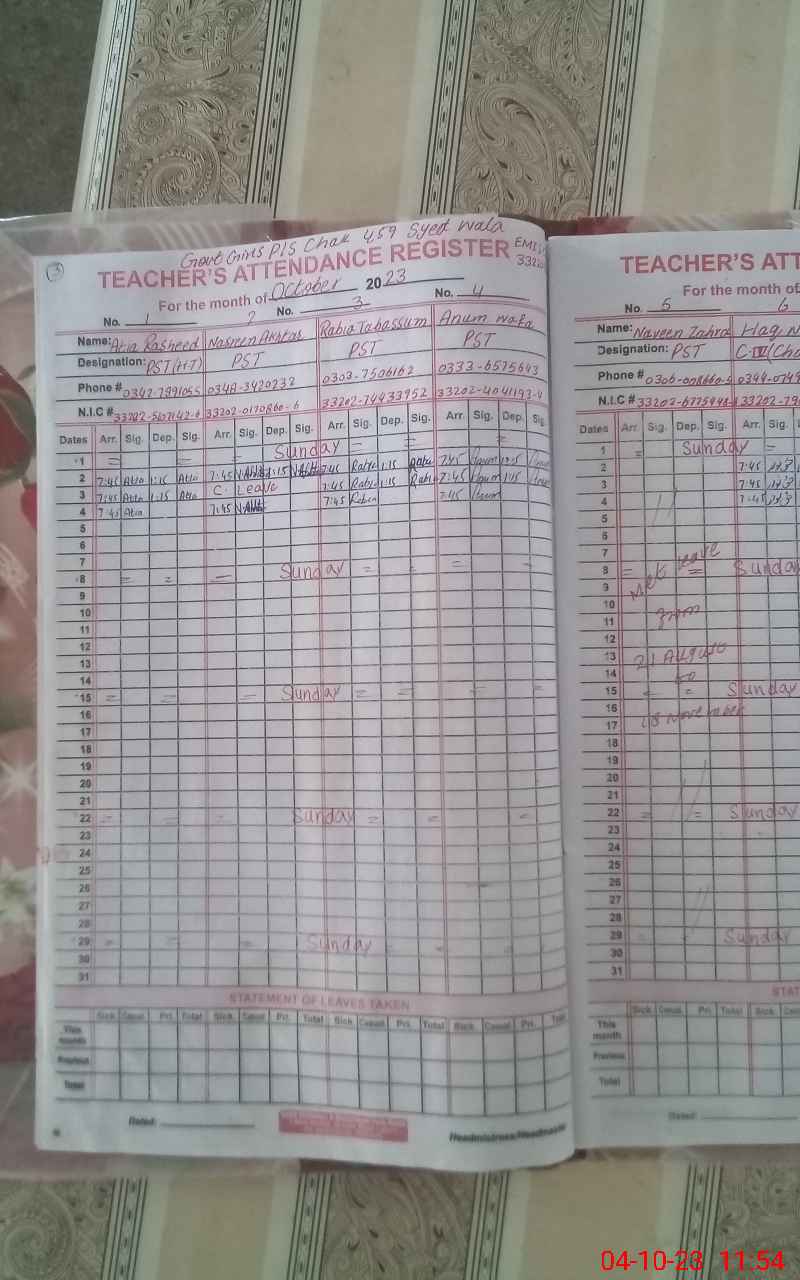 Govt Girls P/S Chak 459 Syed Wala
3
TEACHER'S ATTENDANCE REGISTER
EMIS
For the month of October 2023
No. 1 2 No. 3 No. 4
Name: Atia Rasheed Nasreen Akhtar Rabia Tabassum Anum wafa
Designation: PST(H.T) PST PST PST
Phone # 0303-7506162 0333-6575643
N.I.C #
Dates Arr. Sig. Dep. Sig. Arr. Sig. Dep. Sig. Arr. Sig. Dep. Sig. Arr. Sig. Dep. Sig.
1 = = Sunday = = =
2 7:45 Atia 1:15 Atia 7:45 1:15 7:45 Rabia 1:15 Rabia 7:45 Anum
3 7:45 Atia 1:15 Atia C. Leave 7:45 Rabia 1:15 Rabia 7:45 Anum 1:15
4 7:45 Atia 7:45 7:45 Rabia 7:45 Anum
5
6
7
8 = = = Sunday = = =
9
10
11
12
13
14
15 = = = Sunday = = = =
16
17
18
19
20
21
22 = = = Sunday = = =
23
24
25
26
27
28
29 = = = Sunday
30
31
STATEMENT OF LEAVES TAKEN
Sick Casual Pri. Total Sick Casual Pri. Total Sick Casual Pri. Total Sick Casual Pri. Total
This month
Previous
Total
Dated:
Headmistress/Headmaster
TEACHER'S ATT
For the month of
No. 5 6
Name: Naveen Zahra Haq N
Designation: PST
Phone #
N.I.C #
Dates Arr. Sig. Dep. Sig. Arr. Sig.
1 = Sunday =
2 7:45
3 7:45
4 7:45
5
6
7
8 = = Sunday
9
10
11
12
13
14
15 = Sunday
16
17
18
19
20
21
22 = = Sunday
23
24
25
26
27
28
29 Sunday
30
31
leave
from
21 August
to
18 November
STAT
Sick Casual Pri. Total Sick Casual
This month
Previous
Total
Dated:
04-10-23 11:54